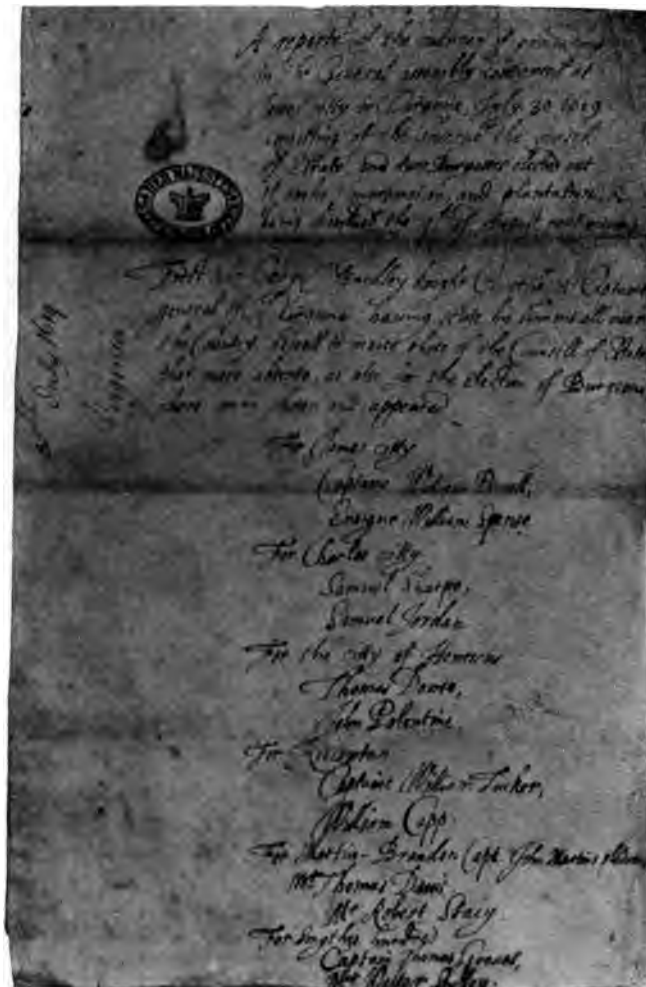 A reporte of the manner of proceeding
in the General assembly convented at
James citty in Virginia, July 30. 1619
consisting of the the Counsell
of Estate and two Burgesses elected out
of and plantation, &
being the of August next
First Sir George Yeardley knight & Captaine
general of Virginia having sente his sumons all over
the Country, as well to invite those of the Counsell of Estate
that were absente, as also for the election of Burgesses
there were chosen and appeared
For James citty
Captaine William Powell,
Ensigne William Spense
For Charles citty
Samuel Sharpe,
Samuel Jordan
For the citty of Henricus
Thomas Dowse,
John Polentine,
For
Captaine William Tucker,
William Capp
For Martin-Brandon Capt. John Martins
Mr Thomas Davis
Mr Robert Stacy
For Smythes hundred
Captain Thomas Graves,
Mr Walter Shelley.
July 1619
Virginia